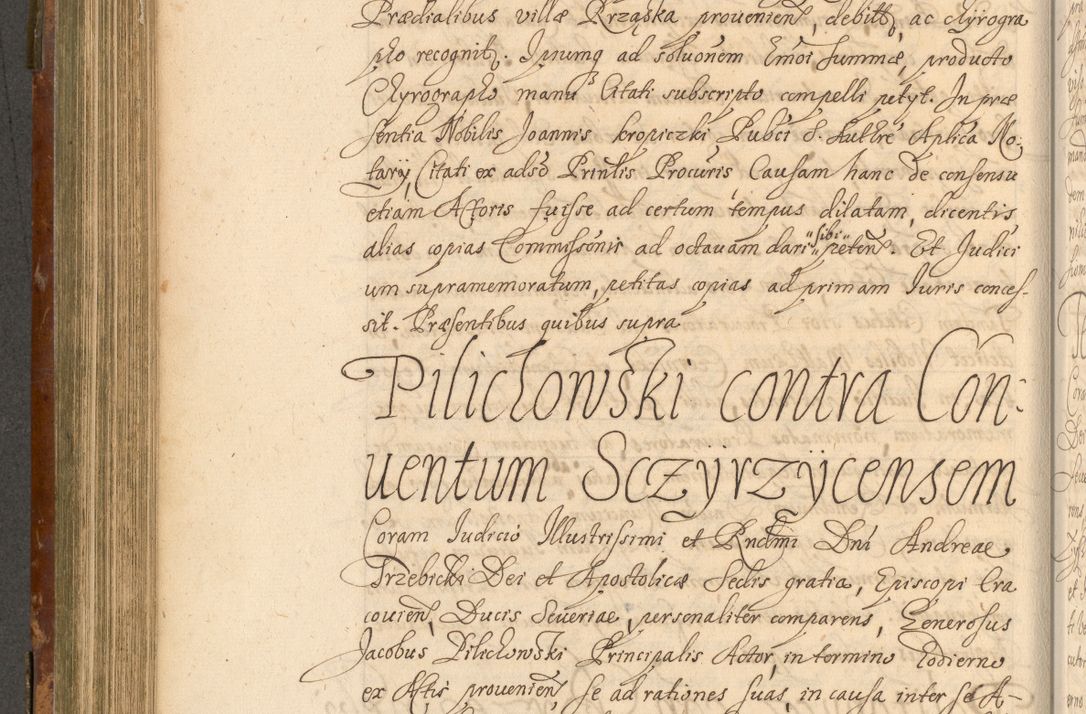 Prædialibus villæ Krząska prouenien, debitt, ac chyrogra
pho recognit. Ipsumq ad solucionem Emoi summæ, producto
Chyrographo manu Citati subscripto compelli petyt. In præ
sentia Nobilis Joannis kropiczki, Pubci S. Authre Aplica No:
tary, Citati ex adso Prinlis Procuris Causam hanc de consensu
etiam Actoris fuisse ad certum tempus dilatam, dicentis
alias copias Commissonis ad octauam dari sibi peten. Et Judici
um supramemoratum, petitas copias ad primam Iuris conces-
sit. Præsentibus quibus supra
Pilichowski contra Con:
uentum Sczÿrzÿcensem
Coram Iudicio Illustrissimi et Rndmi Dni Andreae
Trzebicki Dei et Apostolicæ Sedis gratia, Episcopi Cra
couien, Ducis Seueriae, personaliter comparens, Generosus
Jacobus Pilichowski Principalis Actor, in termino hodierno
ex Actis prouenien, se ad rationes suas, in causa inter se A-